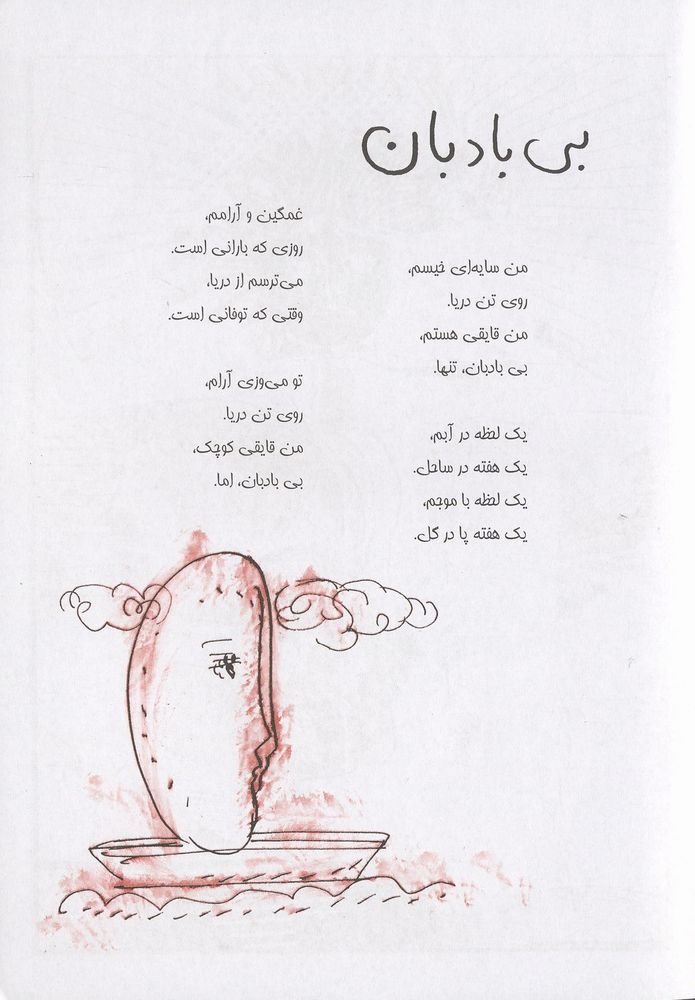 بی بادبان
من سایه‌ای خیسم،
روی تن دریا.
من قایقی هستم،
بی بادبان، تنها.
یک لحظه در آبم،
یک هفته در ساحل.
یک لحظه با موجم،
یک هفته پا در گل.
غمگین و آرامم،
روزی که بارانی است.
می‌ترسم از دریا،
وقتی که توفانی است.
تو می‌وزی آرام،
روی تن دریا.
من قایقی کوچک،
بی بادبان، اما.